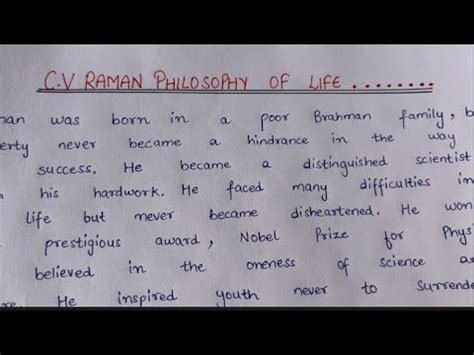 C.V RAMAN PHILOSOPHY OF LIFE ........
man was born in a poor Brahman family, b
erty never became a hindrance in the way
success. He became a distinguished scientist
his hardwork. He faced many difficulties in
life but never became disheartened. He won
prestigious award, Nobel Prize for Phys
believed in the oneness of science a
re. He inspired youth never to Surrende